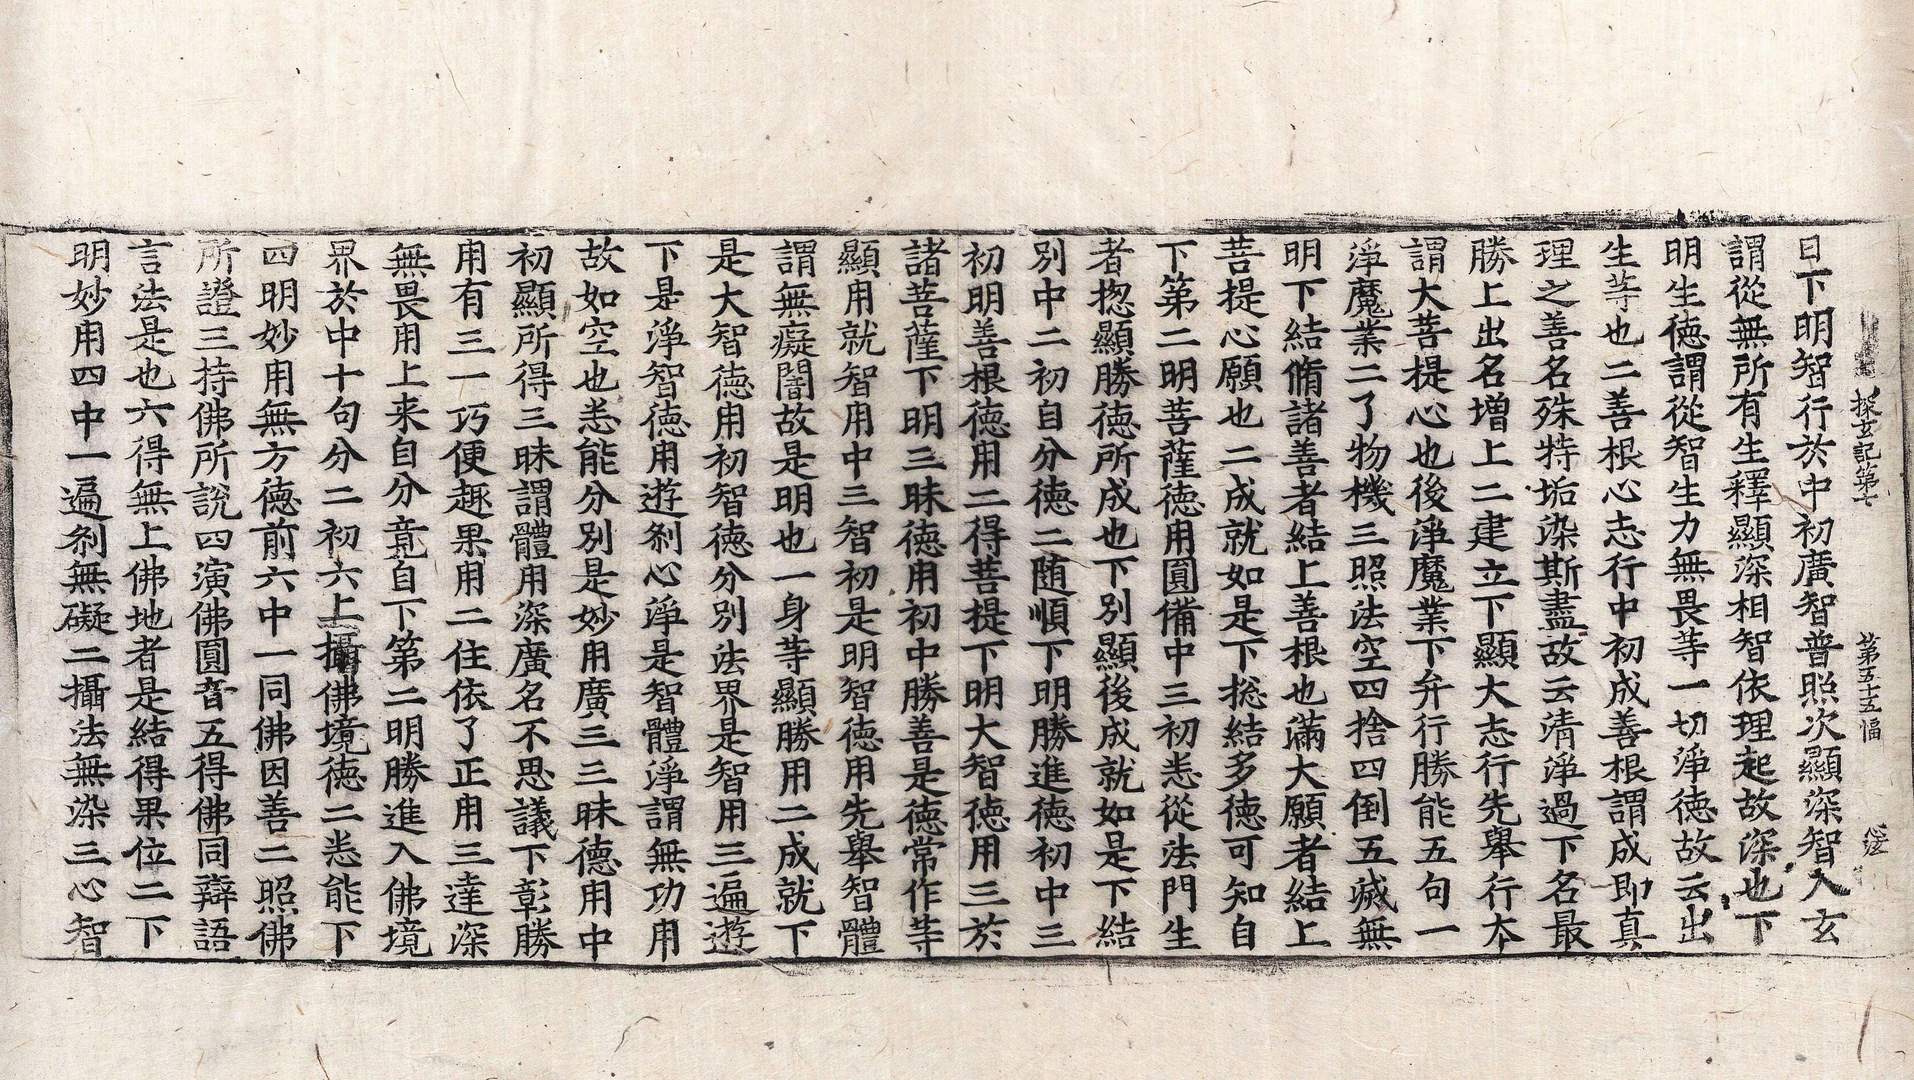 探玄記第七 第五十五幅
曰下明智行於中初廣智普照次顯深智入玄
謂從無所有生釋顯深相智依理起故深也下
明生德謂從智生力無畏等一切淨德故云出
生等也二善根心志行中初成善根謂成即真
理之善名殊特垢染斯盡故云清淨過下名最
勝上出名增上二建立下顯大志行先舉行本
謂大菩提心也後淨魔業下弁行勝能五句一
淨魔業二了物機三照法空四捨四倒五滅無
明下結脩諸善者結上善根也滿大願者結上
菩提心願也二成就如是下捴結多德可知自
下第二明菩薩德用圓備中三初悉從法門生
者揔顯勝德所成也下別顯後成就如是下結
別中二初自分德二随順下明勝進德初中三
初明善根德用二得菩提下明大智德用三於
諸菩薩下明三昧德用初中勝善是德常作等
顯用就智用中三智初是明智德用先舉智體
謂無癡闇故是明也一身等顯勝用二成就下
是大智德用初智德分別法界是智用三遍遊
下是淨智德用遊刹心淨是智體淨謂無功用
故如空也悉能分別是妙用廣三三昧德用中
初顯所得三昧謂體用深廣名不思議下彰勝
用有三一巧便趣果用二住依了正用三達深
無畏用上来自分竟自下第二明勝進入佛境
界於中十句分二初六上攝佛境德二悉能下
四明妙用無方德前六中一同佛因善二照佛
所證三持佛所說四演佛圓音五得佛同辯語
言法是也六得無上佛地者是結得果位二下
明妙用四中一遍刹無礙二攝法無染三心智